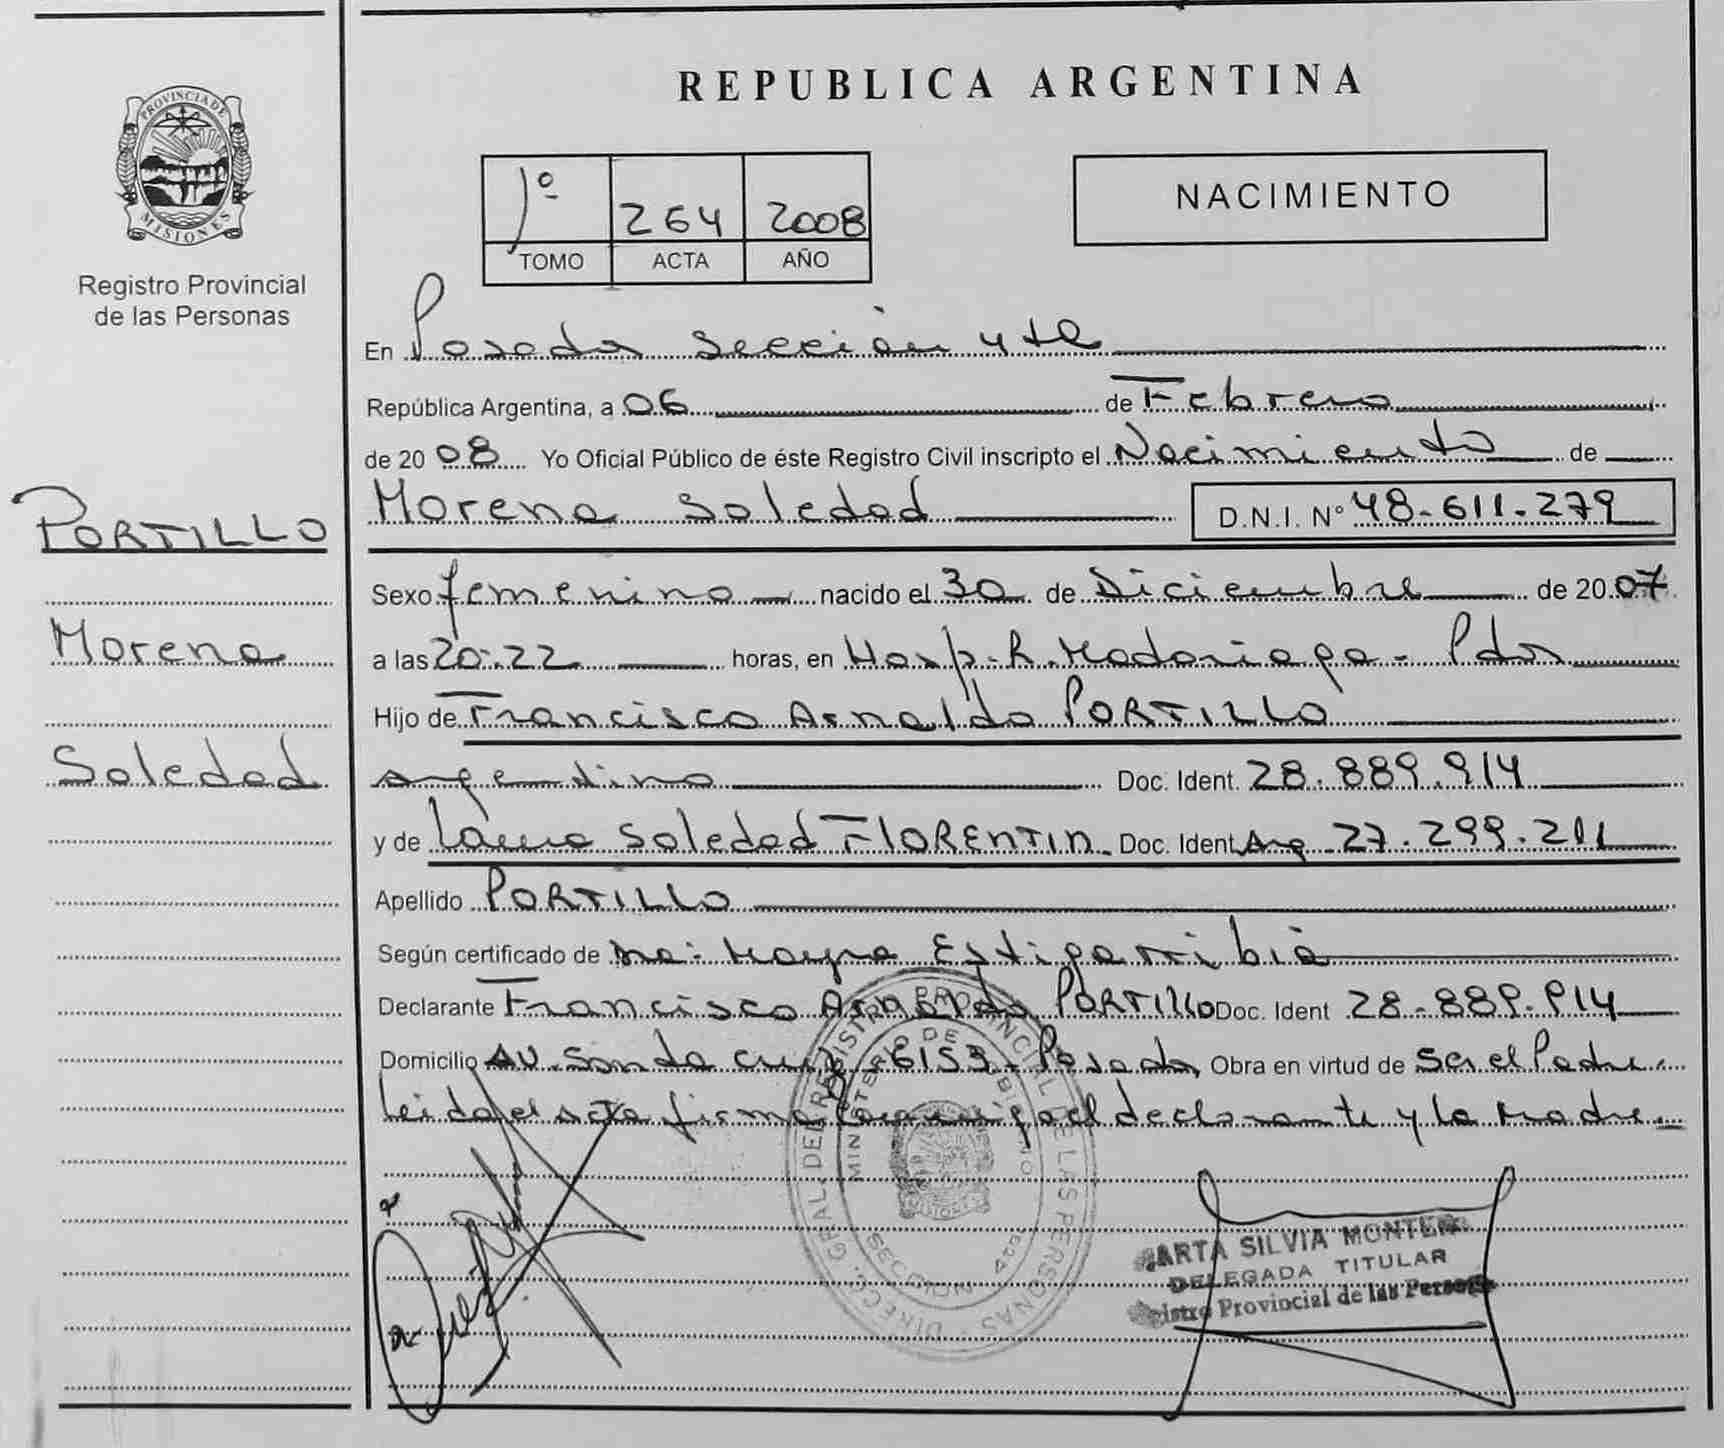 PROVINCIA DE
MISIONES
Registro Provincial
de las Personas
PORTILLO
Morena
Soledad
REPUBLICA ARGENTINA
1º 264 2008
TOMO ACTA AÑO
NACIMIENTO
En Posadas Sección 4ta
República Argentina, a 06 de Febrero
de 20 08 Yo Oficial Público de éste Registro Civil inscripto el Nacimiento de
Morena Soledad D.N.I. Nº 48-611-279
Sexo femenino nacido el 30 de Diciembre de 20 07
a las 20:22 horas, en Hosp. R. Madariaga - Pdas
Hijo de Francisco Arnaldo PORTILLO
argentino Doc. Ident. 28.889.914
y de Laura Soledad FLORENTIN Doc. Ident Arg 27.299.211
Apellido PORTILLO
Según certificado de Mayra Estigarribia
Declarante Francisco Arnaldo PORTILLO Doc. Ident 28-889.914
Domicilio Av. Santa Cruz 6153 - Posadas Obra en virtud de Ser el Padre
Leida el acta firma conmigo el declarante y la Madre
DIRECC. GRAL. DEL REGISTRO PROVINCIAL DE LAS PERSONAS
MINISTERIO DE GOBIERNO
SECCION 4ta
ARTA SILVIA MONTE
DELEGADA TITULAR
istro Provincial de las Persona